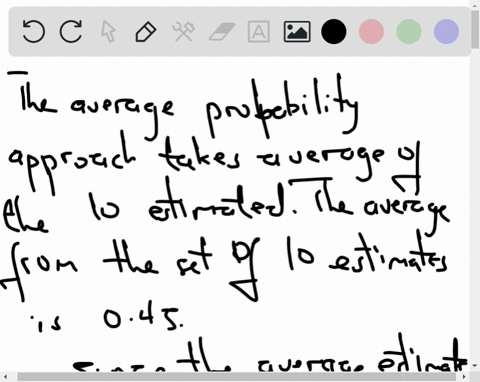 The average probability
approach takes average of
the 10 estimated. The average
from the set of 10 estimates
is 0.45.
since the average estimate